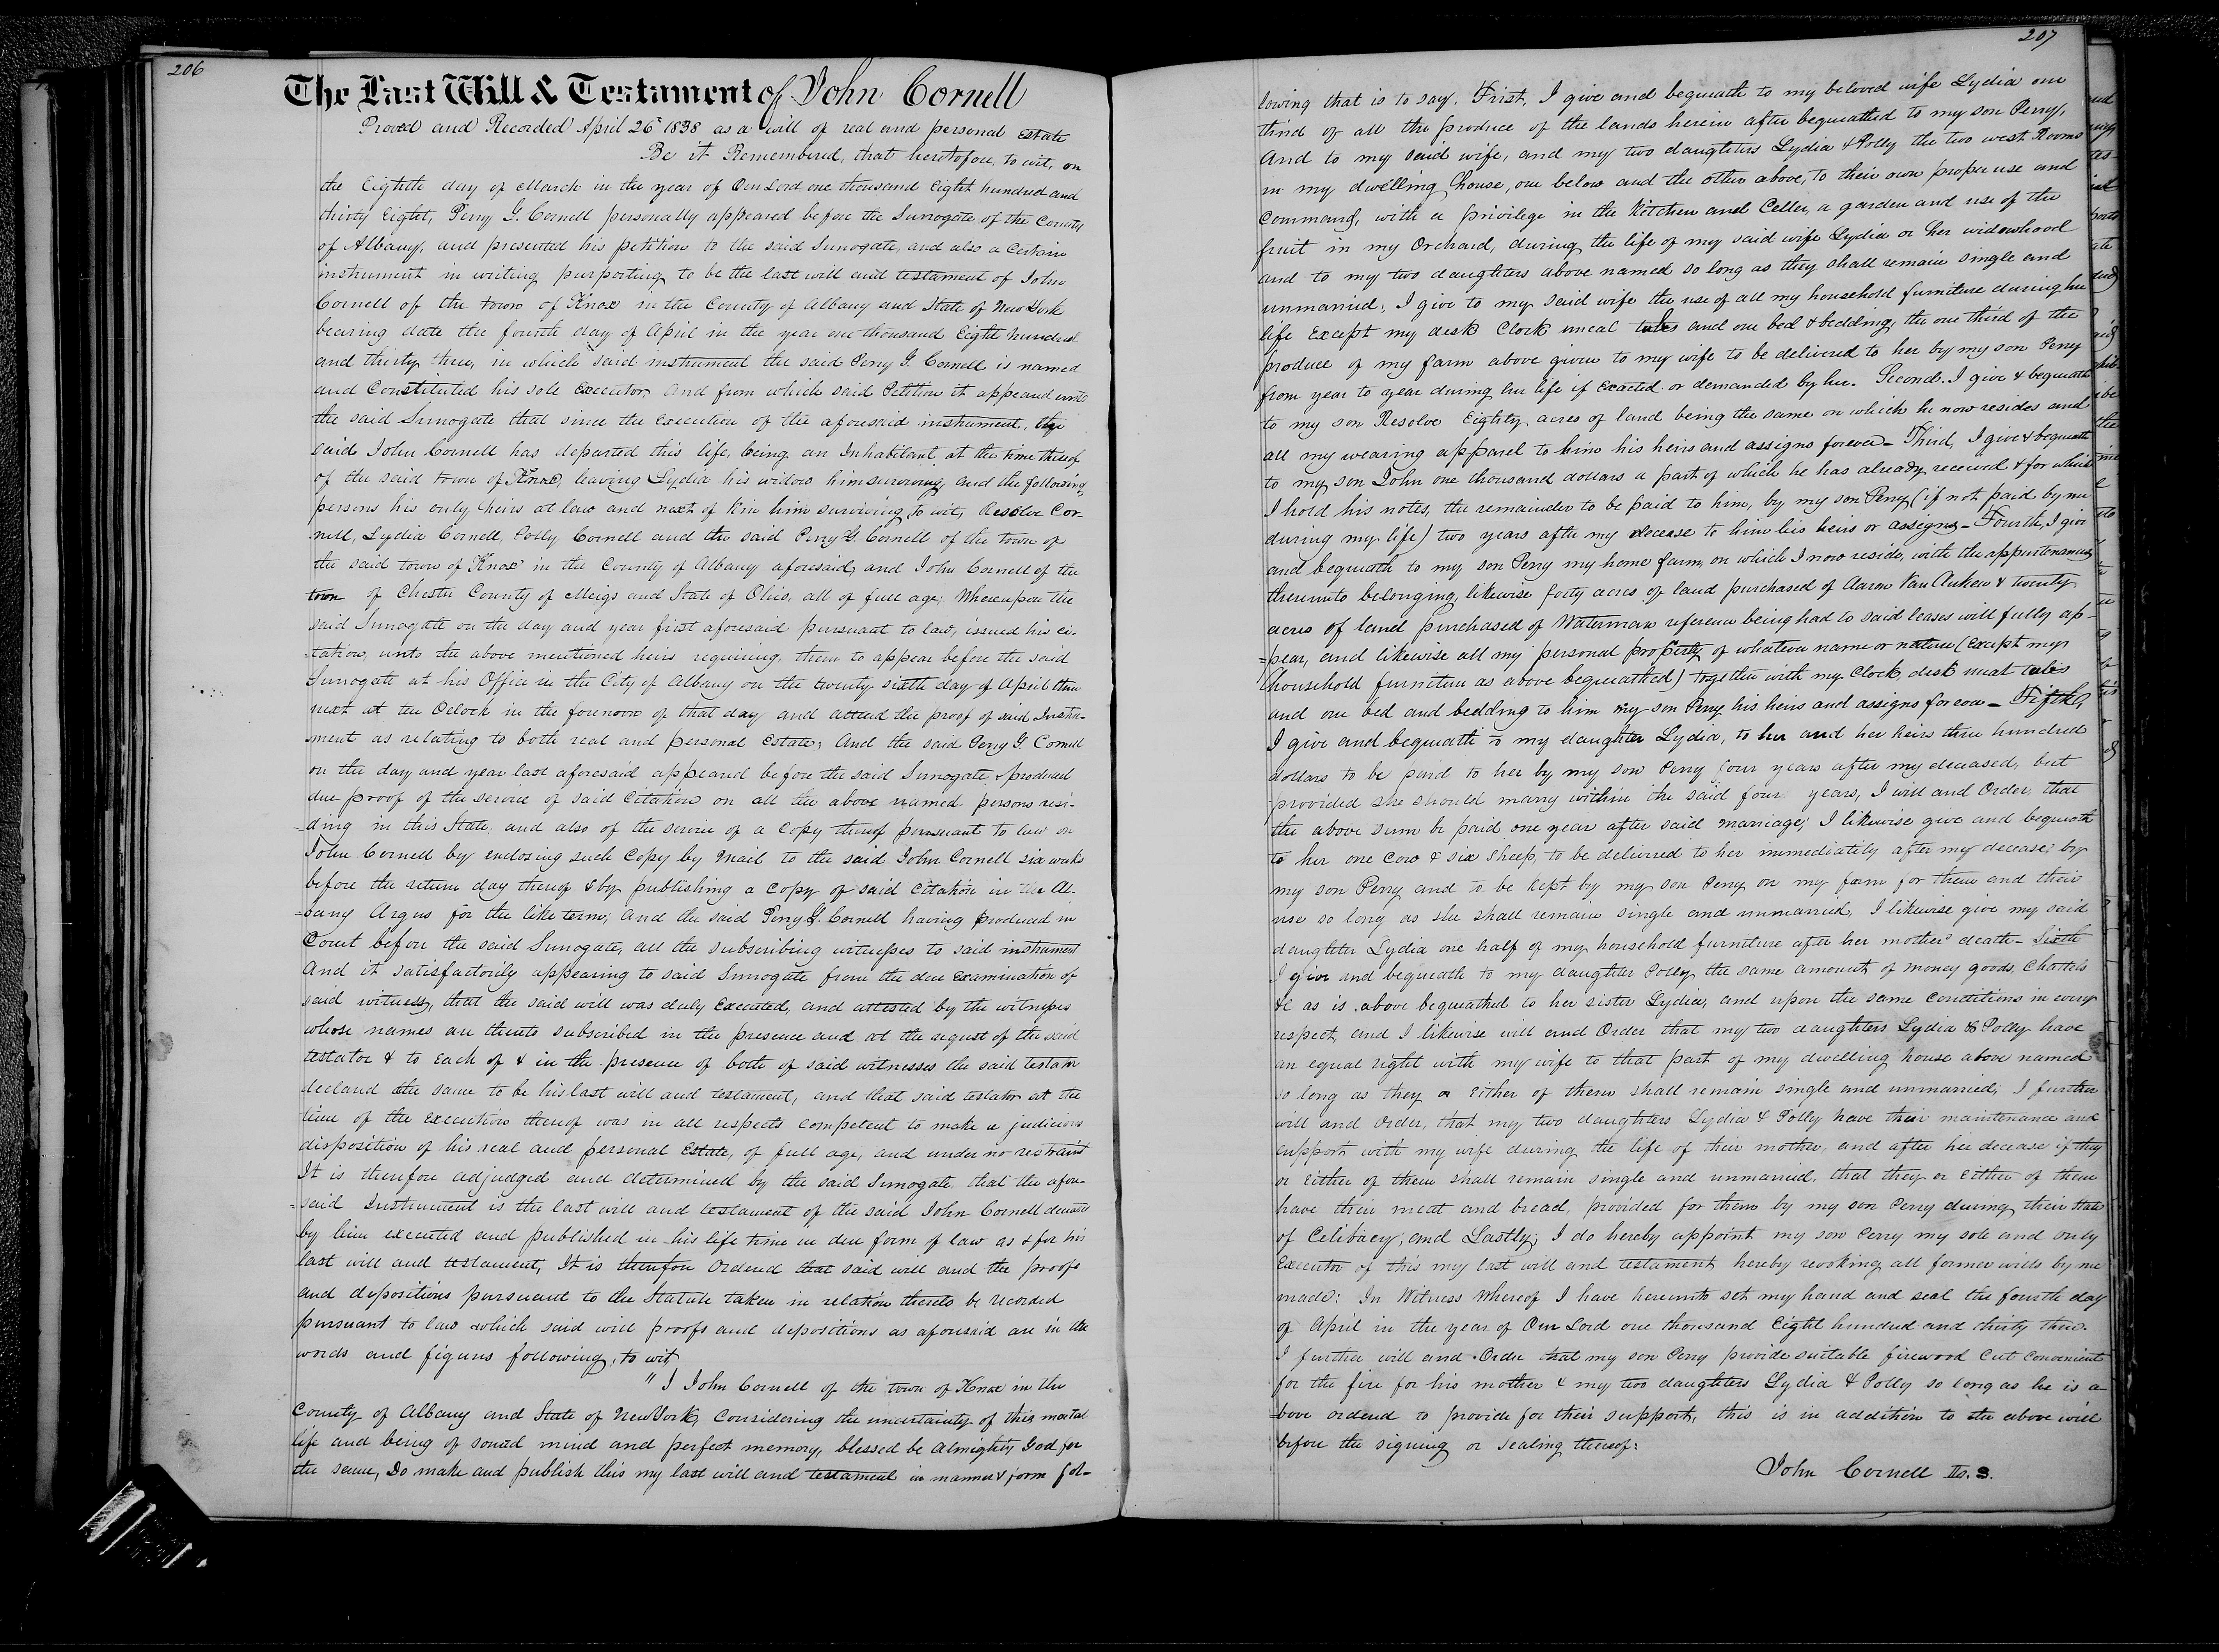 206
The Last Will & Testament of John Cornell
Proved and Recorded April 26th 1838 as a will of real and personal Estate
Be it Remembered, that heretofore, to wit, on
the Eighth day of March in the year of Our Lord one thousand Eight hundred and
thirty Eight, Perry G. Cornell personally appeared before the Surrogate of the County
of Albany, and presented his petition to the said Surrogate, and also a Certain
instrument in writing purporting to be the last will and testament of John
Cornell of the town of Knox in the County of Albany and State of New York
bearing date the fourth day of April in the year one thousand Eight hundred
and thirty three, in which said instrument the said Perry G. Cornell is named
and Constituted his sole Executor And from which said Petition it appeared unto
the said Surrogate that since the Execution of the aforesaid instrument, the
said John Cornell has departed this life, being an Inhabitant at the time thereof
of the said town of Knox, leaving Lydia his widow him surviving, and the following
persons his only heirs at law and next of kin him surviving, to wit, Resolve Cor-
nell, Lydia Cornell, Polly Cornell and the said Perry G. Cornell of the town of
the said town of Knox in the County of Albany aforesaid, and John Cornell of the
town of Chester County of Meigs and State of Ohio, all of full age; Whereupon the
said Surrogate on the day and year first aforesaid pursuant to law, issued his ci-
-tation, unto the above mentioned heirs requiring, them to appear before the said
Surrogate at his Office in the City of Albany on the twenty sixth day of April then
next at ten Oclock in the forenoon of that day and attend the proof of said Instru-
-ment as relating to both real and personal Estate; And the said Perry G. Cornell
on the day and year last aforesaid appeared before the said Surrogate & produced
due proof of the service of said Citation on all the above named persons resi-
-ding in this State, and also of the service of a Copy thereof pursuant to law on
John Cornell by enclosing such Copy by Mail to the said John Cornell six weeks
before the return day thereof & by publishing a Copy of said Citation in the Al-
-bany Argus for the like term; And the said Perry G. Cornell having produced in
Court before the said Surrogate, all the subscribing witnesses to said instrument
And it satisfactorily appearing to said Surrogate from the due Examination of
said witness, that the said will was duly Executed, and attested by the witnesses
whose names are thereto subscribed in the presence and at the request of the said
testator & to Each of & in the presence of both of said witnesses the said testator
declared the same to be his last will and testament, and that said testator at the
time of the Execution thereof was in all respects competent to make a judicious
disposition of his real and personal Estate, of full age, and under no restraint
It is therefore adjudged and determined by the said Surrogate, that the afore-
-said Instrument is the last will and testament of the said John Cornell deceased
by him executed and published in his life time in due form of law as & for his
last will and testament, It is therefore Ordered that said will and the proofs
and depositions pursuant to the Statute taken in relation thereto be recorded
pursuant to law which said will proofs and depositions as aforesaid are in the
words and figures following, to wit
" I John Cornell of the town of Knox in the
County of Albany and State of New York, Considering the uncertainty of this mortal
life and being of sound mind and perfect memory, blessed be Almighty God for
the same, Do make and publish this my last will and testament in manner & form fol-
207
lowing that is to say. Frist, I give and bequeath to my beloved wife Lydia one
third of all the produce of the lands herein after bequeathed to my son Perry,
And to my said wife, and my two daughters Lydia & Polly the two west Rooms
in my dwelling house, one below and the other above, to their own proper use and
Command, with a privilege in the Kitchen and Celler, a garden and use of the
fruit in my Orchard, during the life of my said wife Lydia or her widowhood
and to my two daughters above named so long as they shall remain single and
unmarried; I give to my said wife the use of all my household furniture during her
life Except my desk Clock meal tubes and one bed & bedding, the one third of the
produce of my farm above given to my wife to be delivered to her by my son Perry
from year to year during her life if Exacted or demanded by her. Second. I give & bequeath
to my son Resolve Eighty acres of land being the same on which he now resides and
all my wearing apparel to him his heirs and assigns forever - Third, I give & bequeath
to my son John one thousand dollars a part of which he has already received & for which
I hold his notes, the remainder to be paid to him, by my son Perry (if not paid by me
during my life) two years after my decease to him his heirs or assigns - Fourth, I give
and bequeath to my son Perry my home farm, on which I now reside, with the appurtenances
thereunto belonging, likewise forty acres of land purchased of Aaron Van Auken & twenty
acres of land purchased of Waterman reference being had to said leases will fully ap-
-pear, and likewise all my personal property of whatever name or nature (Except my
household furniture as above bequeathed) together with my Clock, desk meat tubes
and one bed and bedding to him my son Perry his heirs and assigns forever - Fifth,
I give and bequeath to my daughter Lydia, to her and her heirs three hundred
dollars to be paid to her by my son Perry four years after my deceased, but
provided she should marry within the said four years, I will and Order, that
the above sum be paid one year after said marriage; I likewise give and bequeath
to her one Cow & six sheep, to be delivered to her immediatily after my decease, by
my son Perry and to be kept by my son Perry on my farm for them and their
use so long as she shall remain single and unmarried, I likewise give my said
daughter Lydia one half of my household furniture after her mothers death - Sixth
I give and bequeath to my daughter Polly the same amount of money goods, Chattels
&c as is above bequeathed to her sister Lydia, and upon the same Conditions in every
respect, and I likewise will and Order that my two daughters Lydia & Polly have
an equal right with my wife to that part of my dwelling house above named
so long as they or Either of them shall remain single and unmarried; I further
will and Order, that my two daughters Lydia & Polly have their maintenance and
support with my wife during the life of their mother, and after her decease if they
or Either of them shall remain single and unmarried, that they or Either of them
have their meat and bread, provided for them by my son Perry during their State
of Celibacy; and Lastly; I do hereby appoint my son Perry my sole and only
Executor of this my last will and testament hereby revoking all former wills by me
made: In Witness Whereof I have hereunto set my hand and seal the fourth day
of April in the year of Our Lord one thousand Eight hundred and thirty three.
I further will and Order that my son Perry provide suitable firewood Cut Convenient
for the fire for his mother & my two daughters Lydia & Polly so long as he is a-
-bove ordered to provide for their support, this is in addition to the above will
before the signing or Sealing thereof:
John Cornell L. S.